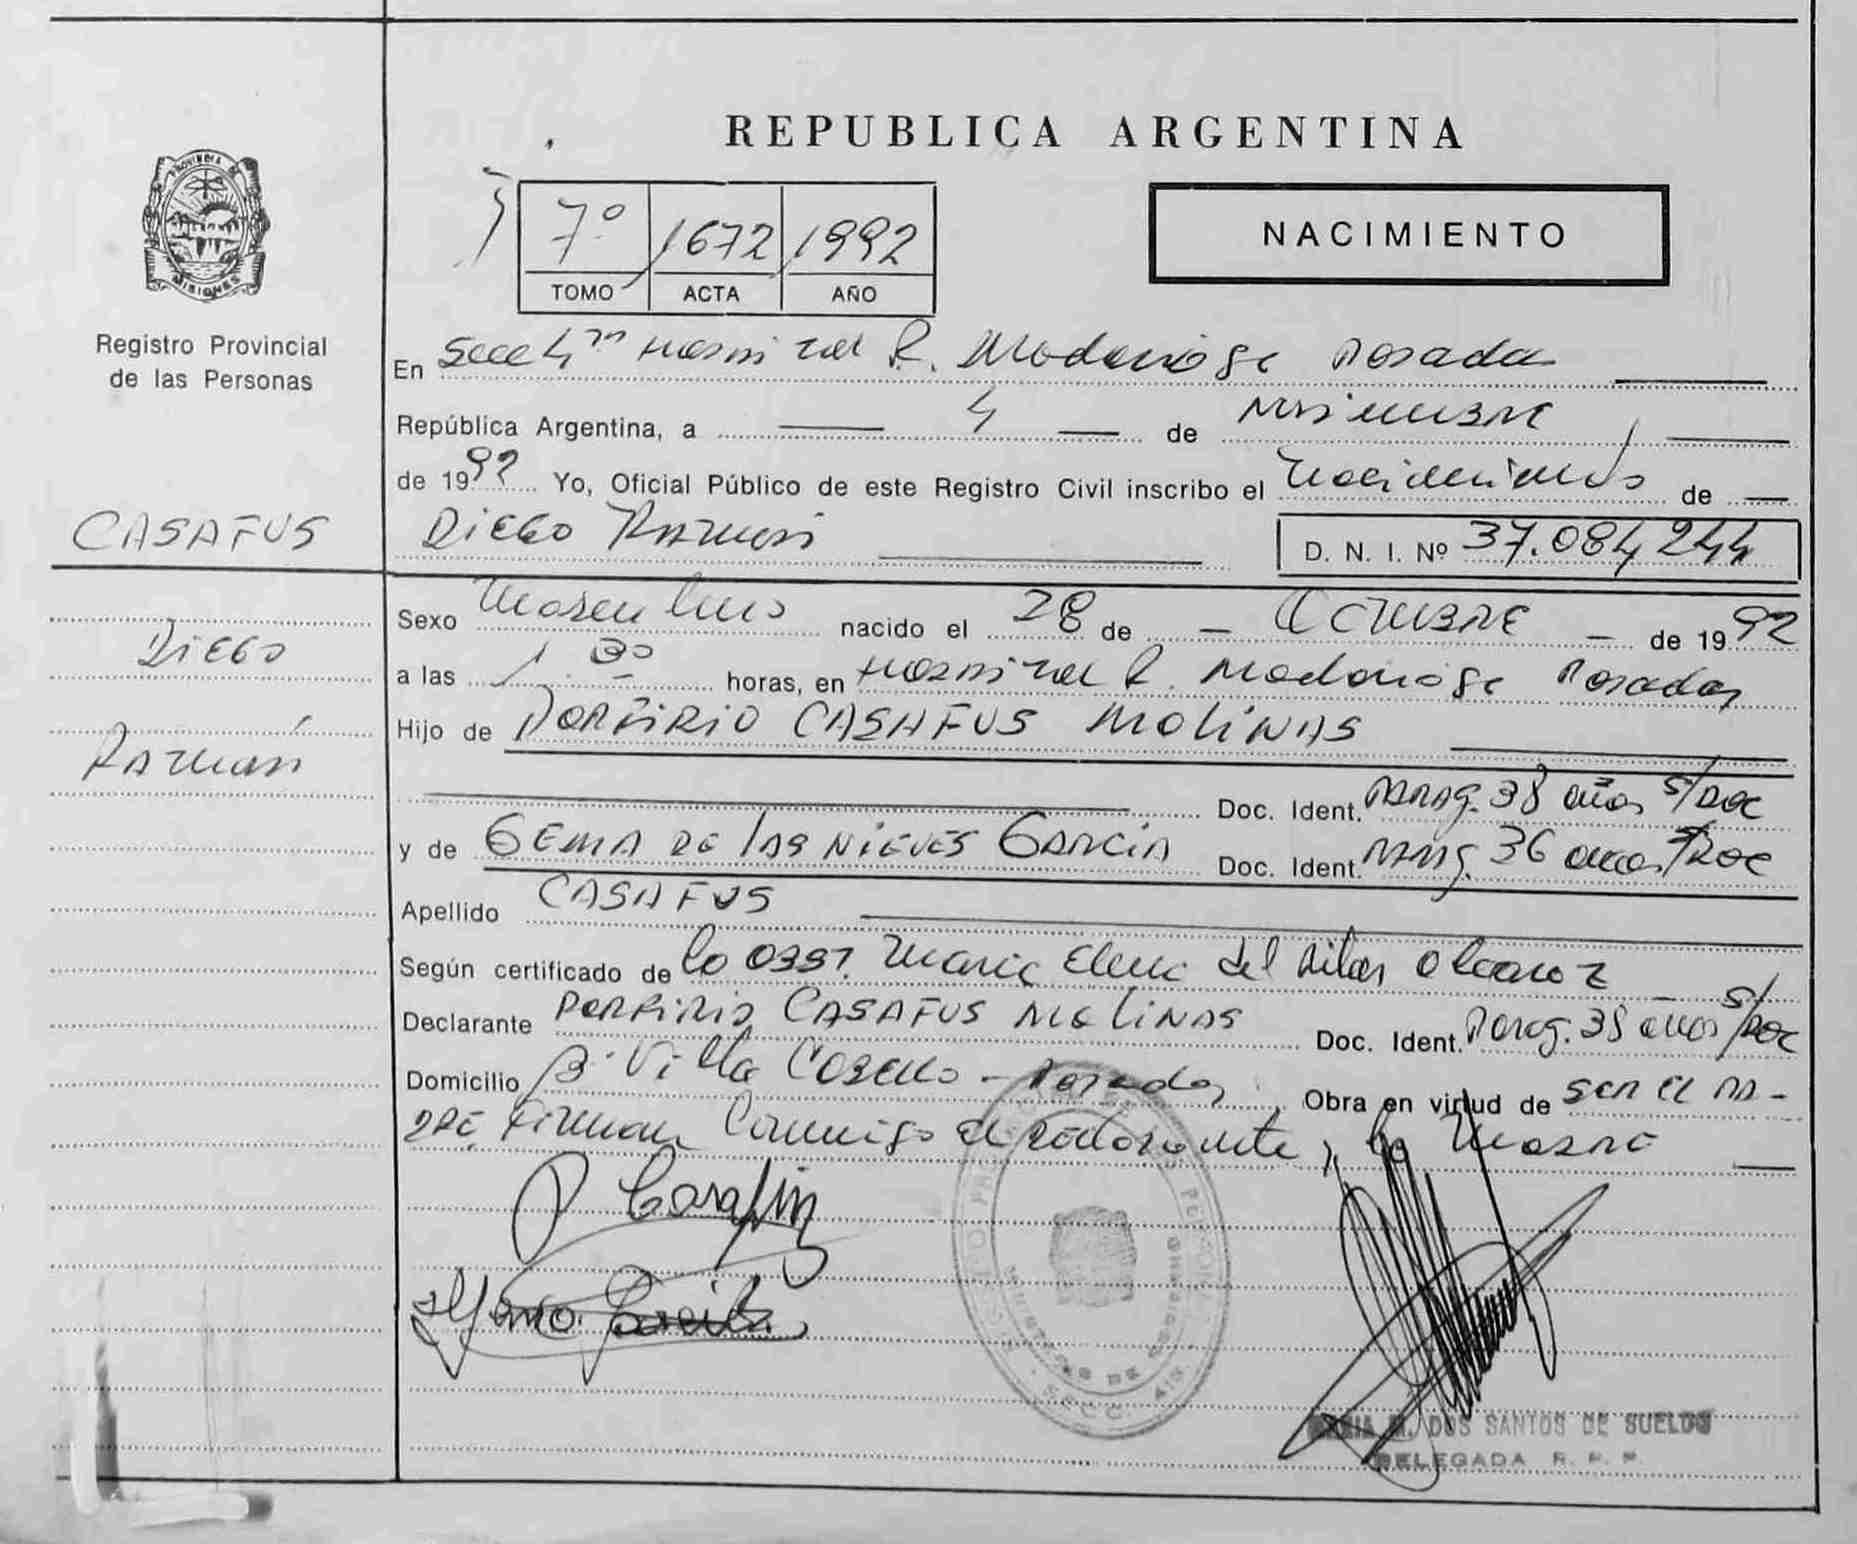 REPUBLICA ARGENTINA
PROVINCIA DE
MISIONES
Registro Provincial
de las Personas
7º 1672 1992
TOMO ACTA AÑO
NACIMIENTO
En Secc 4ta Hospital R. Madariaga Posadas
República Argentina, a 4 de Noviembre
de 1992 Yo, Oficial Público de este Registro Civil inscribo el Nacimiento de
CASAFUS
DIEGO RAMON
D. N. I. Nº 37.084.244
Diego
Ramón
Sexo Masculino nacido el 28 de - Octubre - de 1992
a las 1 30 horas, en Hospital R. Madariaga Posadas
Hijo de PORFIRIO CASAFUS MOLINAS
Doc. Ident. Parag. 38 años s/Doc
y de GEMA DE LAS NIEVES GARCIA Doc. Ident. Parag. 36 años s/Doc
Apellido CASAFUS
Según certificado de la Obst. Maria Elena del Pilar
Declarante PORFIRIO CASAFUS MOLINAS Doc. Ident. Parag. 38 años s/Doc
Domicilio Bº Villa - Posadas, Obra en virtud de ser el pa-
dre. Firman Conmigo el declarante y la Madre
P Casafus
Gema Garcia
DOS SANTOS DE SUELDO
DELEGADA R. P. P.